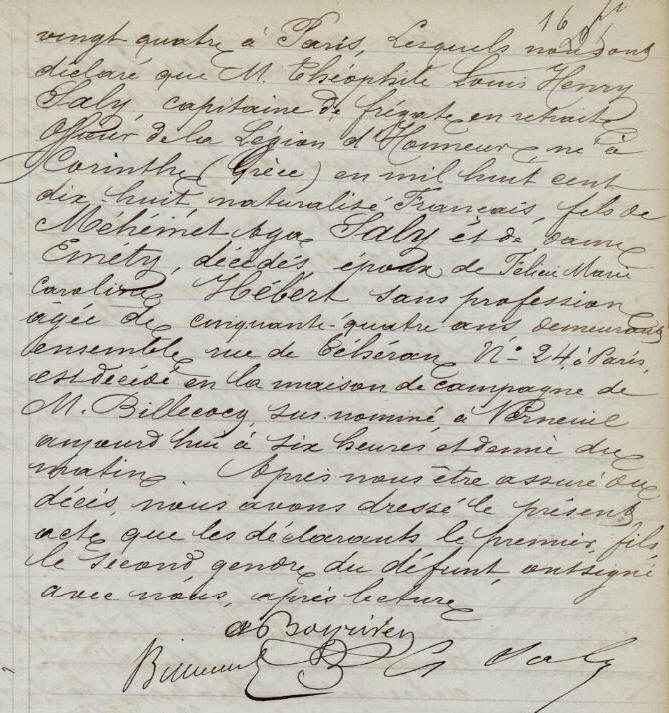 16
vingt quatre à Paris, Lesquels nous ont
déclaré que M. Théophile Louis Henry
Saly capitaine de frégate en retraite
Officier de la Légion d'Honneur, né à
Corinthe (Grèce) en mil huit cent
dix-huit, naturalisé Français, fils de
Méhémet Aga Saly et de dame
Eméty, décédés, époux de Félicie Marie
Caroline Hébert sans profession
agée de cinquante-quatre ans demeurant
ensemble, rue de Téhéran N° 24, à Paris,
est décédé en la maison de campagne de
M. Billecocq, sus nommé, à Verneuil
aujourd'hui à six heures et demie du
matin. Après nous être assuré du
décès, nous avons dressé le présent
acte que les déclarants, le premier, fils,
le second gendre du défunt, ont signé
avec nous, après lecture
G Saly